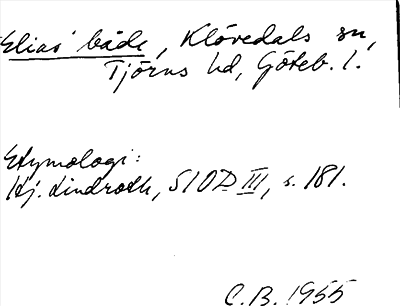 Elias' både, Klövedals sn,
Tjörns hd, Göteb. l.
Etymologi:
Hj. Lindroth, SIOD III, s. 181.
C.B. 1955